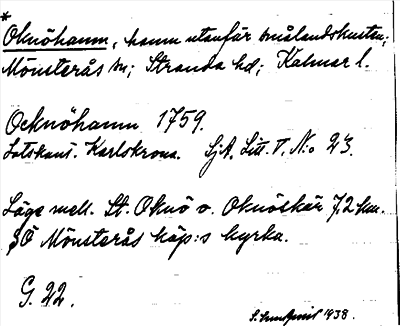 *
Oknöhamn, hamn utanför smålandskusten;
Mönsterås sn; Stranda hd; Kalmar l.
Ocknöhamn 1759.
Lotskont. Karlskrona. SjA. Litt. V. No 23.
Läge mell. St. Oknö o. Oknöskär 7,2 km.
SÖ Mönsterås köp:s kyrka.
G. 22.
1938.